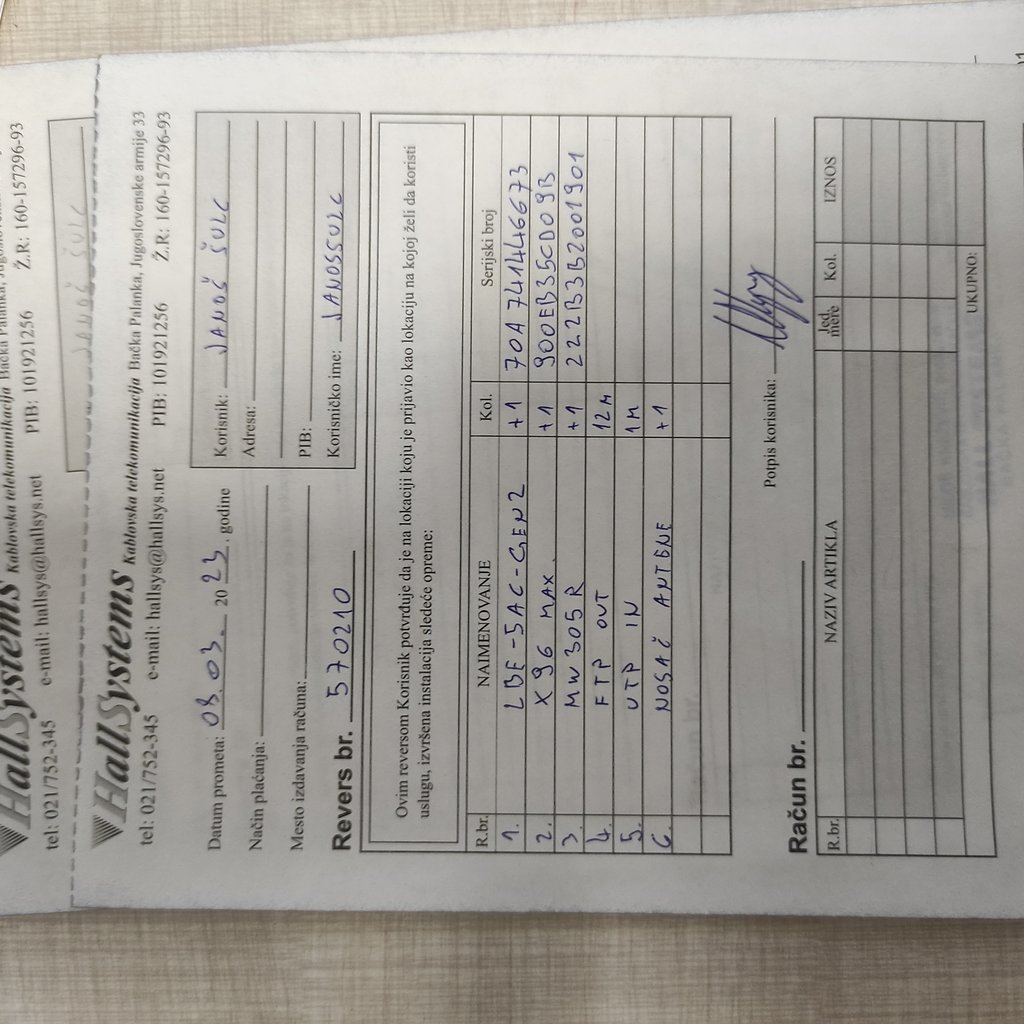 HallSystems Kablovska telekomunikacija Bačka Palanka,
tel: 021/752-345 e-mail: hallsys@hallsys.net PIB: 101921256 Ž.R: 160-157296-93
JANOŠ ŠULC
HallSystems Kablovska telekomunikacija Bačka Palanka, Jugoslovenske armije 33
tel: 021/752-345 e-mail: hallsys@hallsys.net PIB: 101921256 Ž.R: 160-157296-93
Datum prometa: 08.03. 2023. godine
Način plaćanja:
Mesto izdavanja računa:
Revers br. 570210
Korisnik: JANOŠ ŠULC
Adresa:
PIB:
Korisničko ime: JANOSSULC
Ovim reversom Korisnik potvrđuje da je na lokaciji koju je prijavio kao lokaciju na kojoj želi da koristi
uslugu, izvršena instalacija sledeće opreme:
R.br. NAIMENOVANJE Kol. Serijski broj
1. LBE-5AC-GEN2 +1 70A741446673
2. X96 MAX +1 900EB35CD09B
3. MW305R +1 222B3B2001901
4. FTP OUT 12M
5. UTP IN 1M
6. NOSAČ ANTENE +1
Potpis korisnika:
Račun br.
R.br. NAZIV ARTIKLA Jed. mere Kol. IZNOS
UKUPNO: